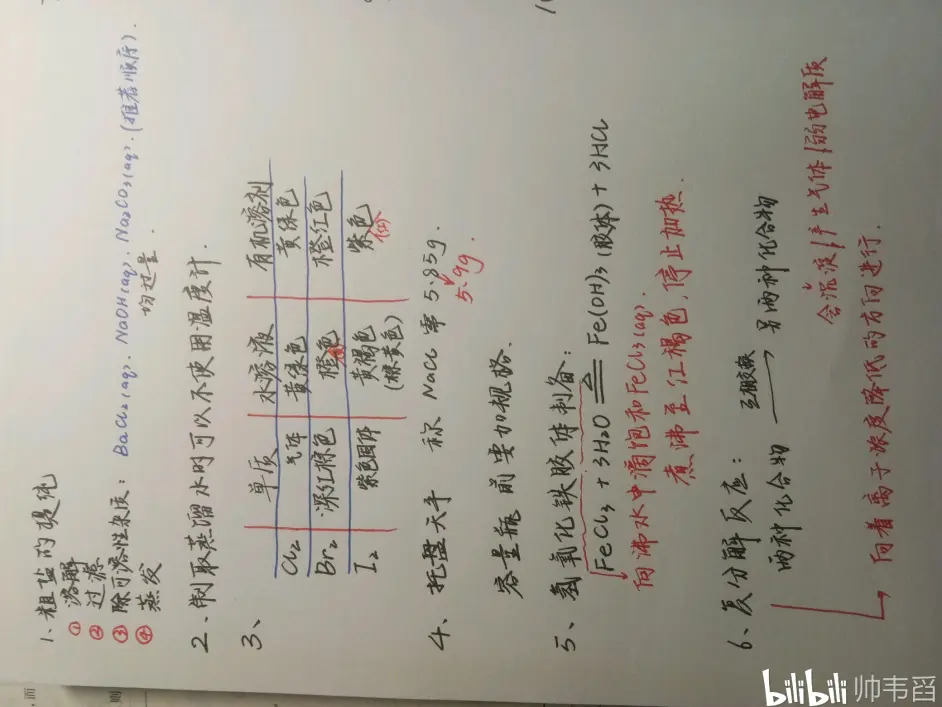 1、粗盐的提纯
① 溶解
② 过滤
③ 除可溶性杂质： BaCl₂(aq)、NaOH(aq)、Na₂CO₃(aq)、(推荐顺序)
均过量
④ 蒸发
2、制取蒸馏水时可以不使用温度计.
3、
单质 水溶液 有机溶剂
Cl₂ 气体 黄绿色 黄绿色
Br₂ 深红棕色 橙色 橙红色
I₂ 紫色固体 黄褐色 (棕黄色) 紫色
4、托盘天平 称 NaCl 需 5.85g.
5.9g
容量瓶 前要加规格.
5、氢氧化铁胶体制备：
FeCl₃ + 3H₂O ══△══ Fe(OH)₃(胶体) + 3HCl
向沸水中滴饱和FeCl₃(aq).
煮沸至红褐色,停止加热.
6、复分解反应：
两种化合物 ⟶ 另两种化合物
含沉淀/产生气体/弱电解质
向着离子浓度降低的方向进行.
而
则
bilibili 帅韦舀